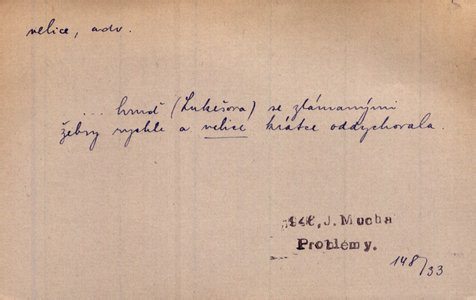 velice, adv.
... hruď (Lukešova) se zlámanými
žebry rychle a velice krátce oddychovala.
946, J. Mucha
Problémy.
148/33